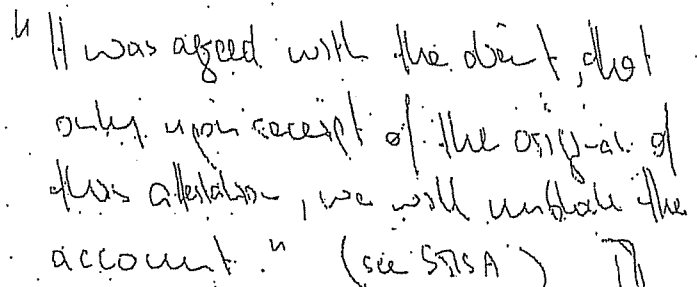 "It was agreed with the client, that
only upon receipt of the original of
this attestation, we will unblock the
account." (see